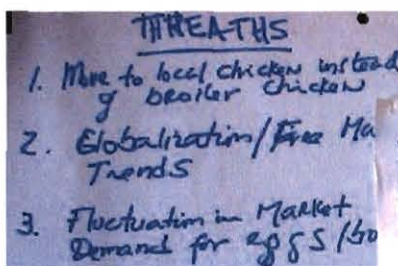 THREATHS
1. Move to local chicken instead
of broiler chicken
2. Globalization/Free Ma
Trends
3. Fluctuation in Market
Demand for eggs/